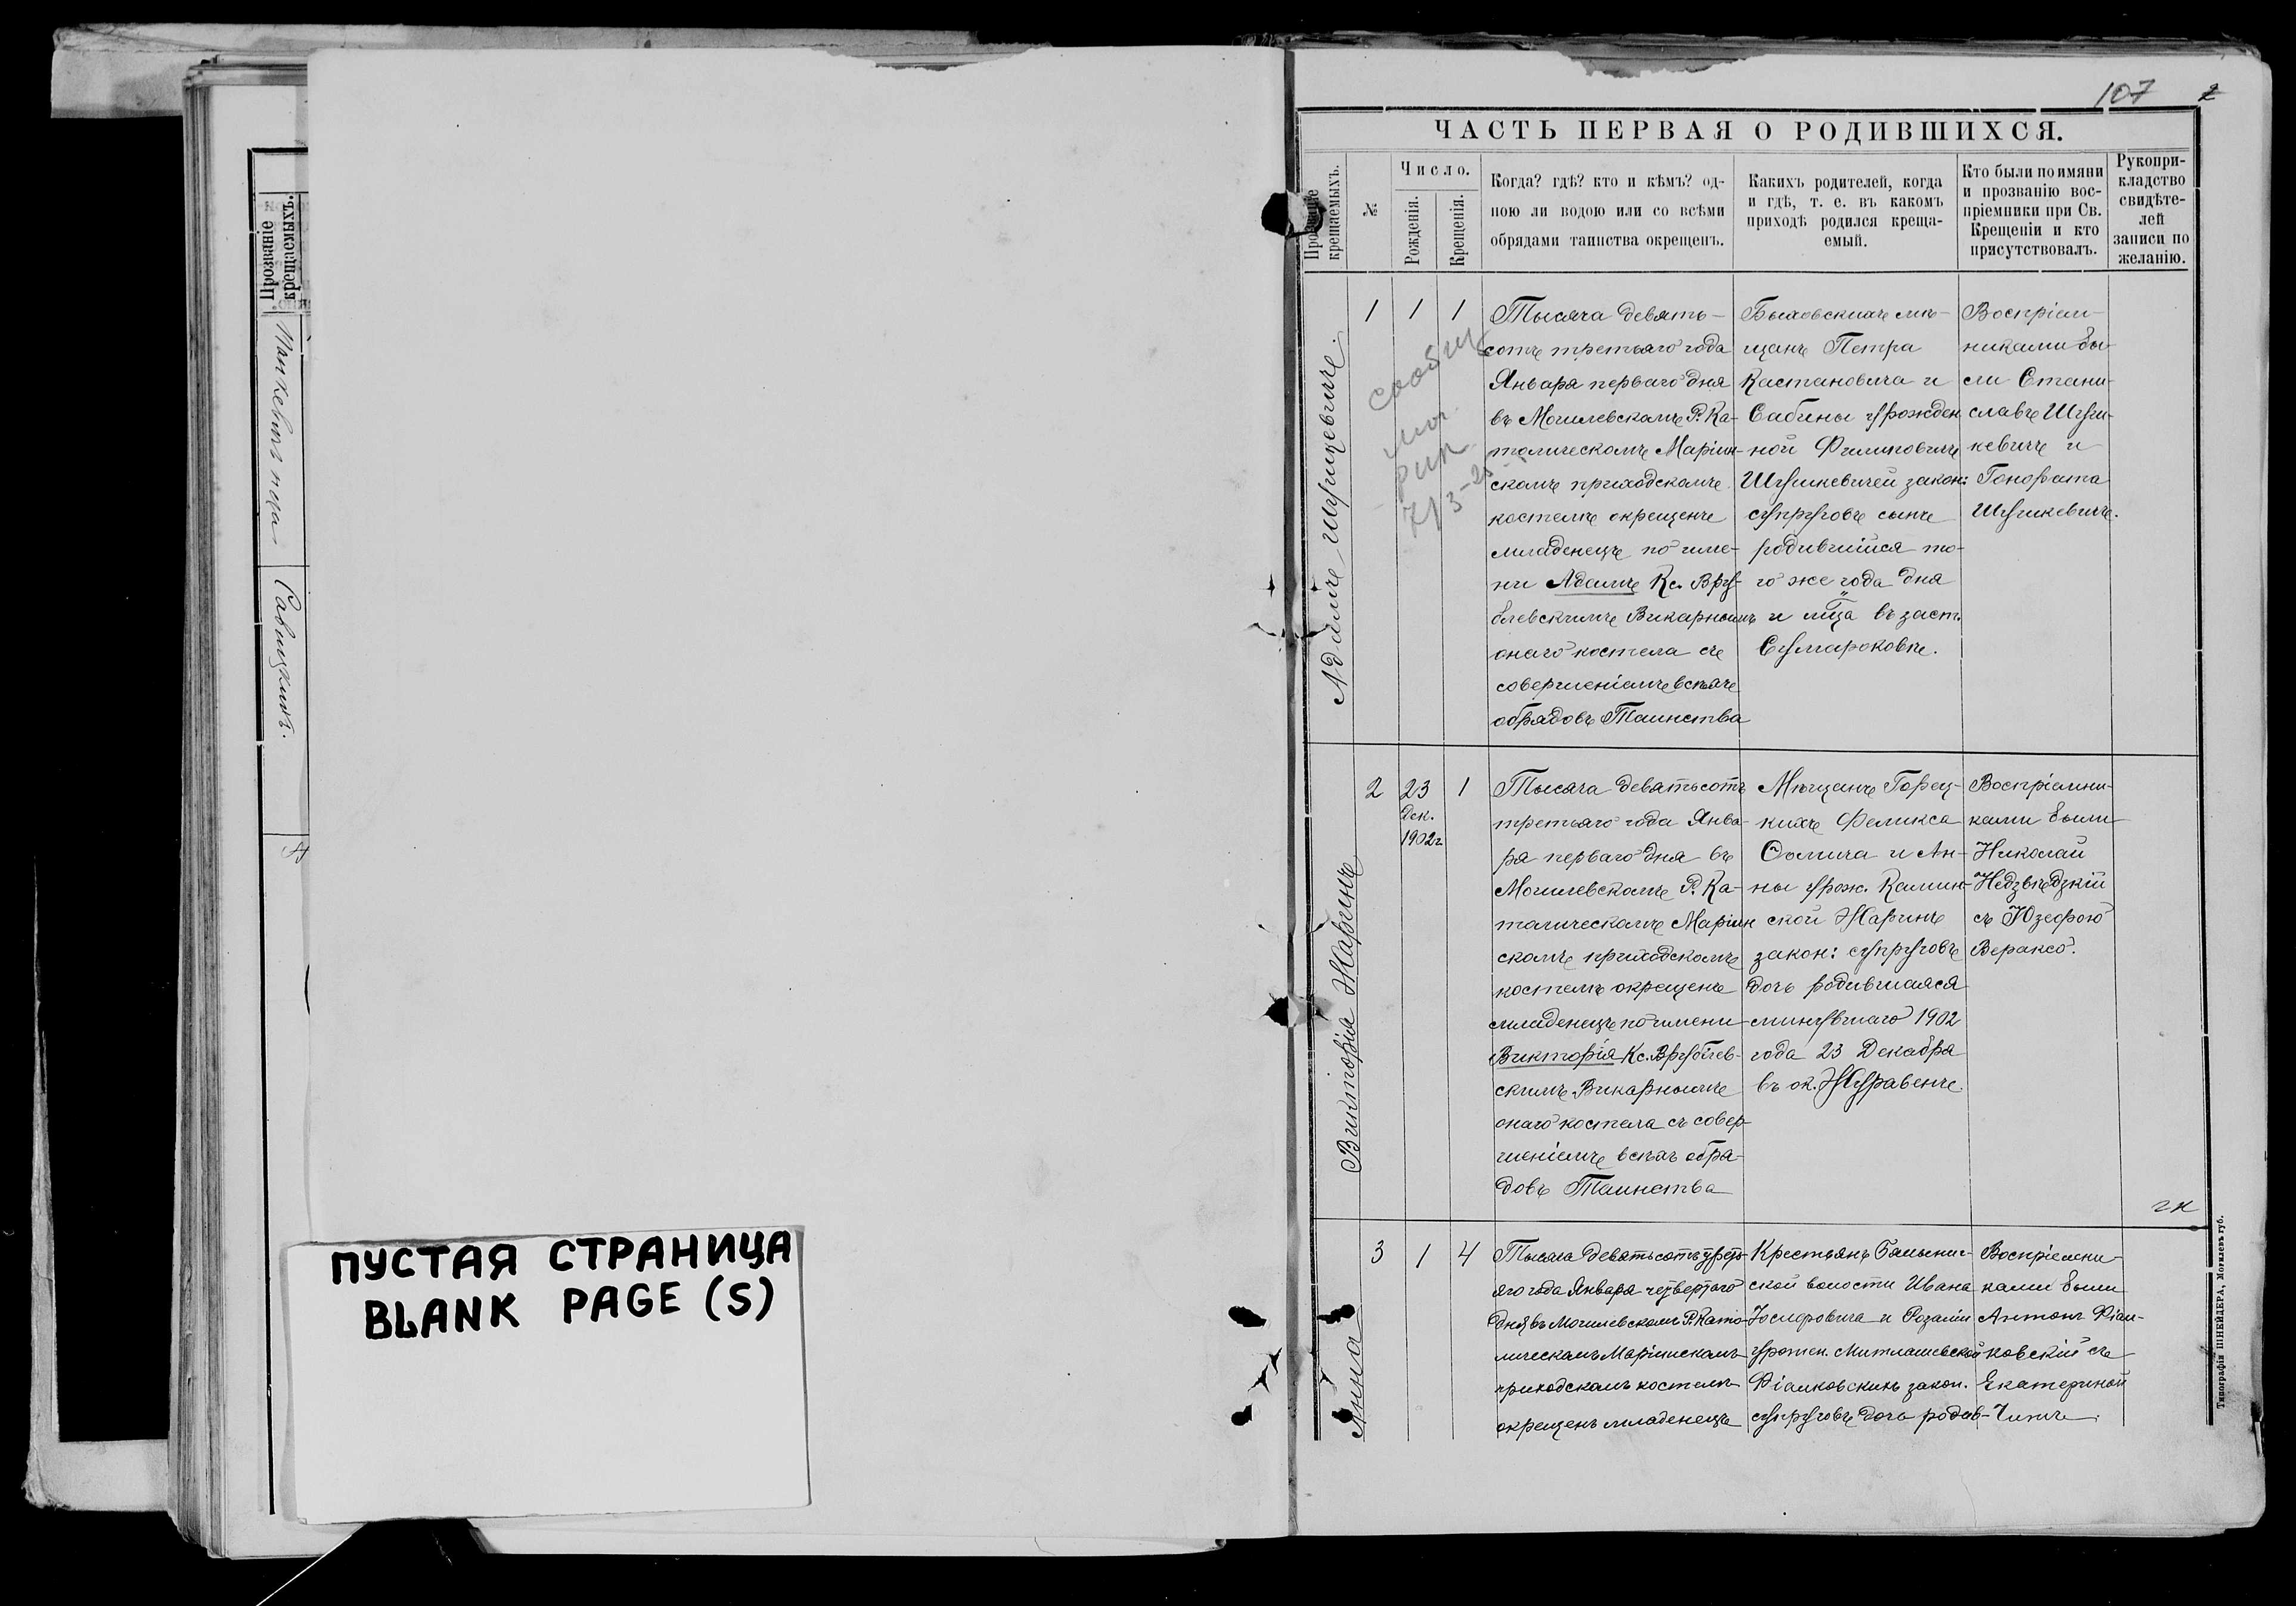 107 2
ЧАСТЬ ПЕРВАЯ О РОДИВШИХСЯ.
Прозваніе
крещаемыхъ.
№
Число.
Рожденія.
Крещенія.
Когда? гдѣ? кто и кѣмъ? од-
ною ли водою или со всѣми
обрядами таинства окрещенъ.
Какихъ родителей, когда
и гдѣ, т. е. въ какомъ
приходѣ родился креща-
емый.
Кто были по имяни
и прозванію вос-
пріемники при Св.
Крещеніи и кто
присутствовалъ.
Рукопри-
кладство
свидѣте-
лей
записи по
желанію.
Адамъ Шушкевичъ.
1
1
1
Тысяча девять-
сотъ третьяго года
Января перваго дня
въ Могилевскомъ Р. Ка-
толическомъ Маріин-
скомъ приходскомъ
костелѣ окрещенъ
младенецъ по име-
ни Адамъ Кс. Вру-
блевскимъ Викарнымъ
онаго костела съ
совершеніемъ всѣхъ
обрядовъ Таинства
Быховскихъ мѣ-
щанъ Петра
Кастановича и
Сабины урожден
ной Филиповичъ
Шушкевичей закон:
супруговъ сынъ
родившійся то-
го же года дня
и мца въ заст.
Сумароковѣ.
Воспріем-
никами бы-
ли Стани-
славъ Шуш-
кевичъ и
Гонората
Шушкевичъ.
сообщ
7/3-25
Викторія Жаринъ
2
23
Дек.
1902г
1
Тысяча девятьсотъ
третьяго года Янва-
ря перваго дня въ
Могилевскомъ Р. Ка-
толическомъ Маріин
скомъ приходскомъ
костелѣ окрещенъ
младенецъ по имени
Викторія Кс. Врублев-
скимъ Викарнымъ
онаго костела съ совер-
шеніемъ всѣхъ обря-
довъ Таинства
Мѣщанъ Горец-
кихъ Феликса
Осипа и Ан-
ны урож. Камин-
ской Жаринъ
закон: супруговъ
дочь родившаяся
минувшаго 1902
года 23 Декабря
въ ок. Журавецъ
Воспріемни-
ками были
Николай
Недзвѣдзкій
съ Юзефою
Вераксо.
Анна
3
1
4
Тысяча девятьсотъ треть-
яго года Января четвертаго
дня въ Могилевскомъ Р. Като-
лическомъ Маріинскомъ
приходскомъ костелѣ
окрещенъ младенецъ
Крестьянъ Бялынич-
ской волости Ивана
Іосифовича и Розаліи
урожен. Митлашевской
Фіалковскихъ закон.
супруговъ дочь родив-
Воспріемни-
ками были
Антонъ Фіал-
ковскій съ
Екатериной
Типографія ШНЕЙДЕРА, Могилевъ губ.
Прозваніе
крещаемыхъ.
Савицкимъ.
ПУСТАЯ СТРАНИЦА
BLANK PAGE (S)